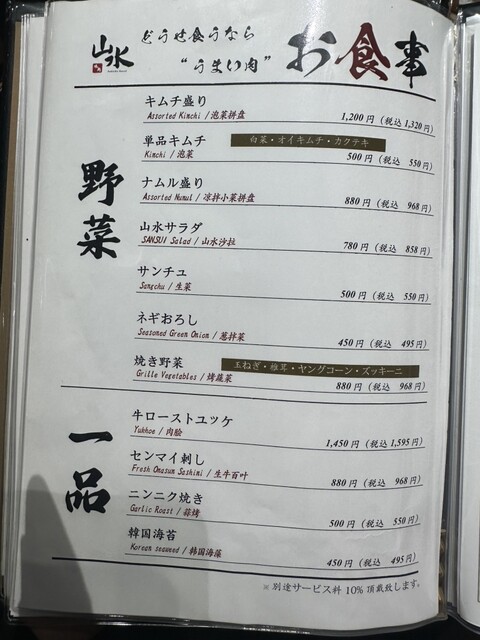 山水
どうせ食うなら
“うまい肉”
お食事
野菜
キムチ盛り
Assorted Kimchi / 泡菜拼盘
1,200円 (税込 1,320円)
単品キムチ
白菜・オイキムチ・カクテキ
Kimchi / 泡菜
500円 (税込 550円)
ナムル盛り
Assorted Namul / 凉拌小菜拼盘
880円 (税込 968円)
山水サラダ
SANSUI Salad / 山水沙拉
780円 (税込 858円)
サンチュ
Sangchu / 生菜
500円 (税込 550円)
ネギおろし
Seasoned Green Onion / 葱拌菜
450円 (税込 495円)
焼き野菜
玉ねぎ・椎茸・ヤングコーン・ズッキーニ
Grille Vegetables / 烤蔬菜
880円 (税込 968円)
一品
牛ローストユッケ
Yukhoe / 肉脍
1,450円 (税込 1,595円)
センマイ刺し
Fresh Omasum Sashimi / 生牛百叶
880円 (税込 968円)
ニンニク焼き
Garlic Roast / 蒜烤
500円 (税込 550円)
韓国海苔
Korean seaweed / 韩国海藻
450円 (税込 495円)
※ 別途サービス料 10% 頂戴致します。